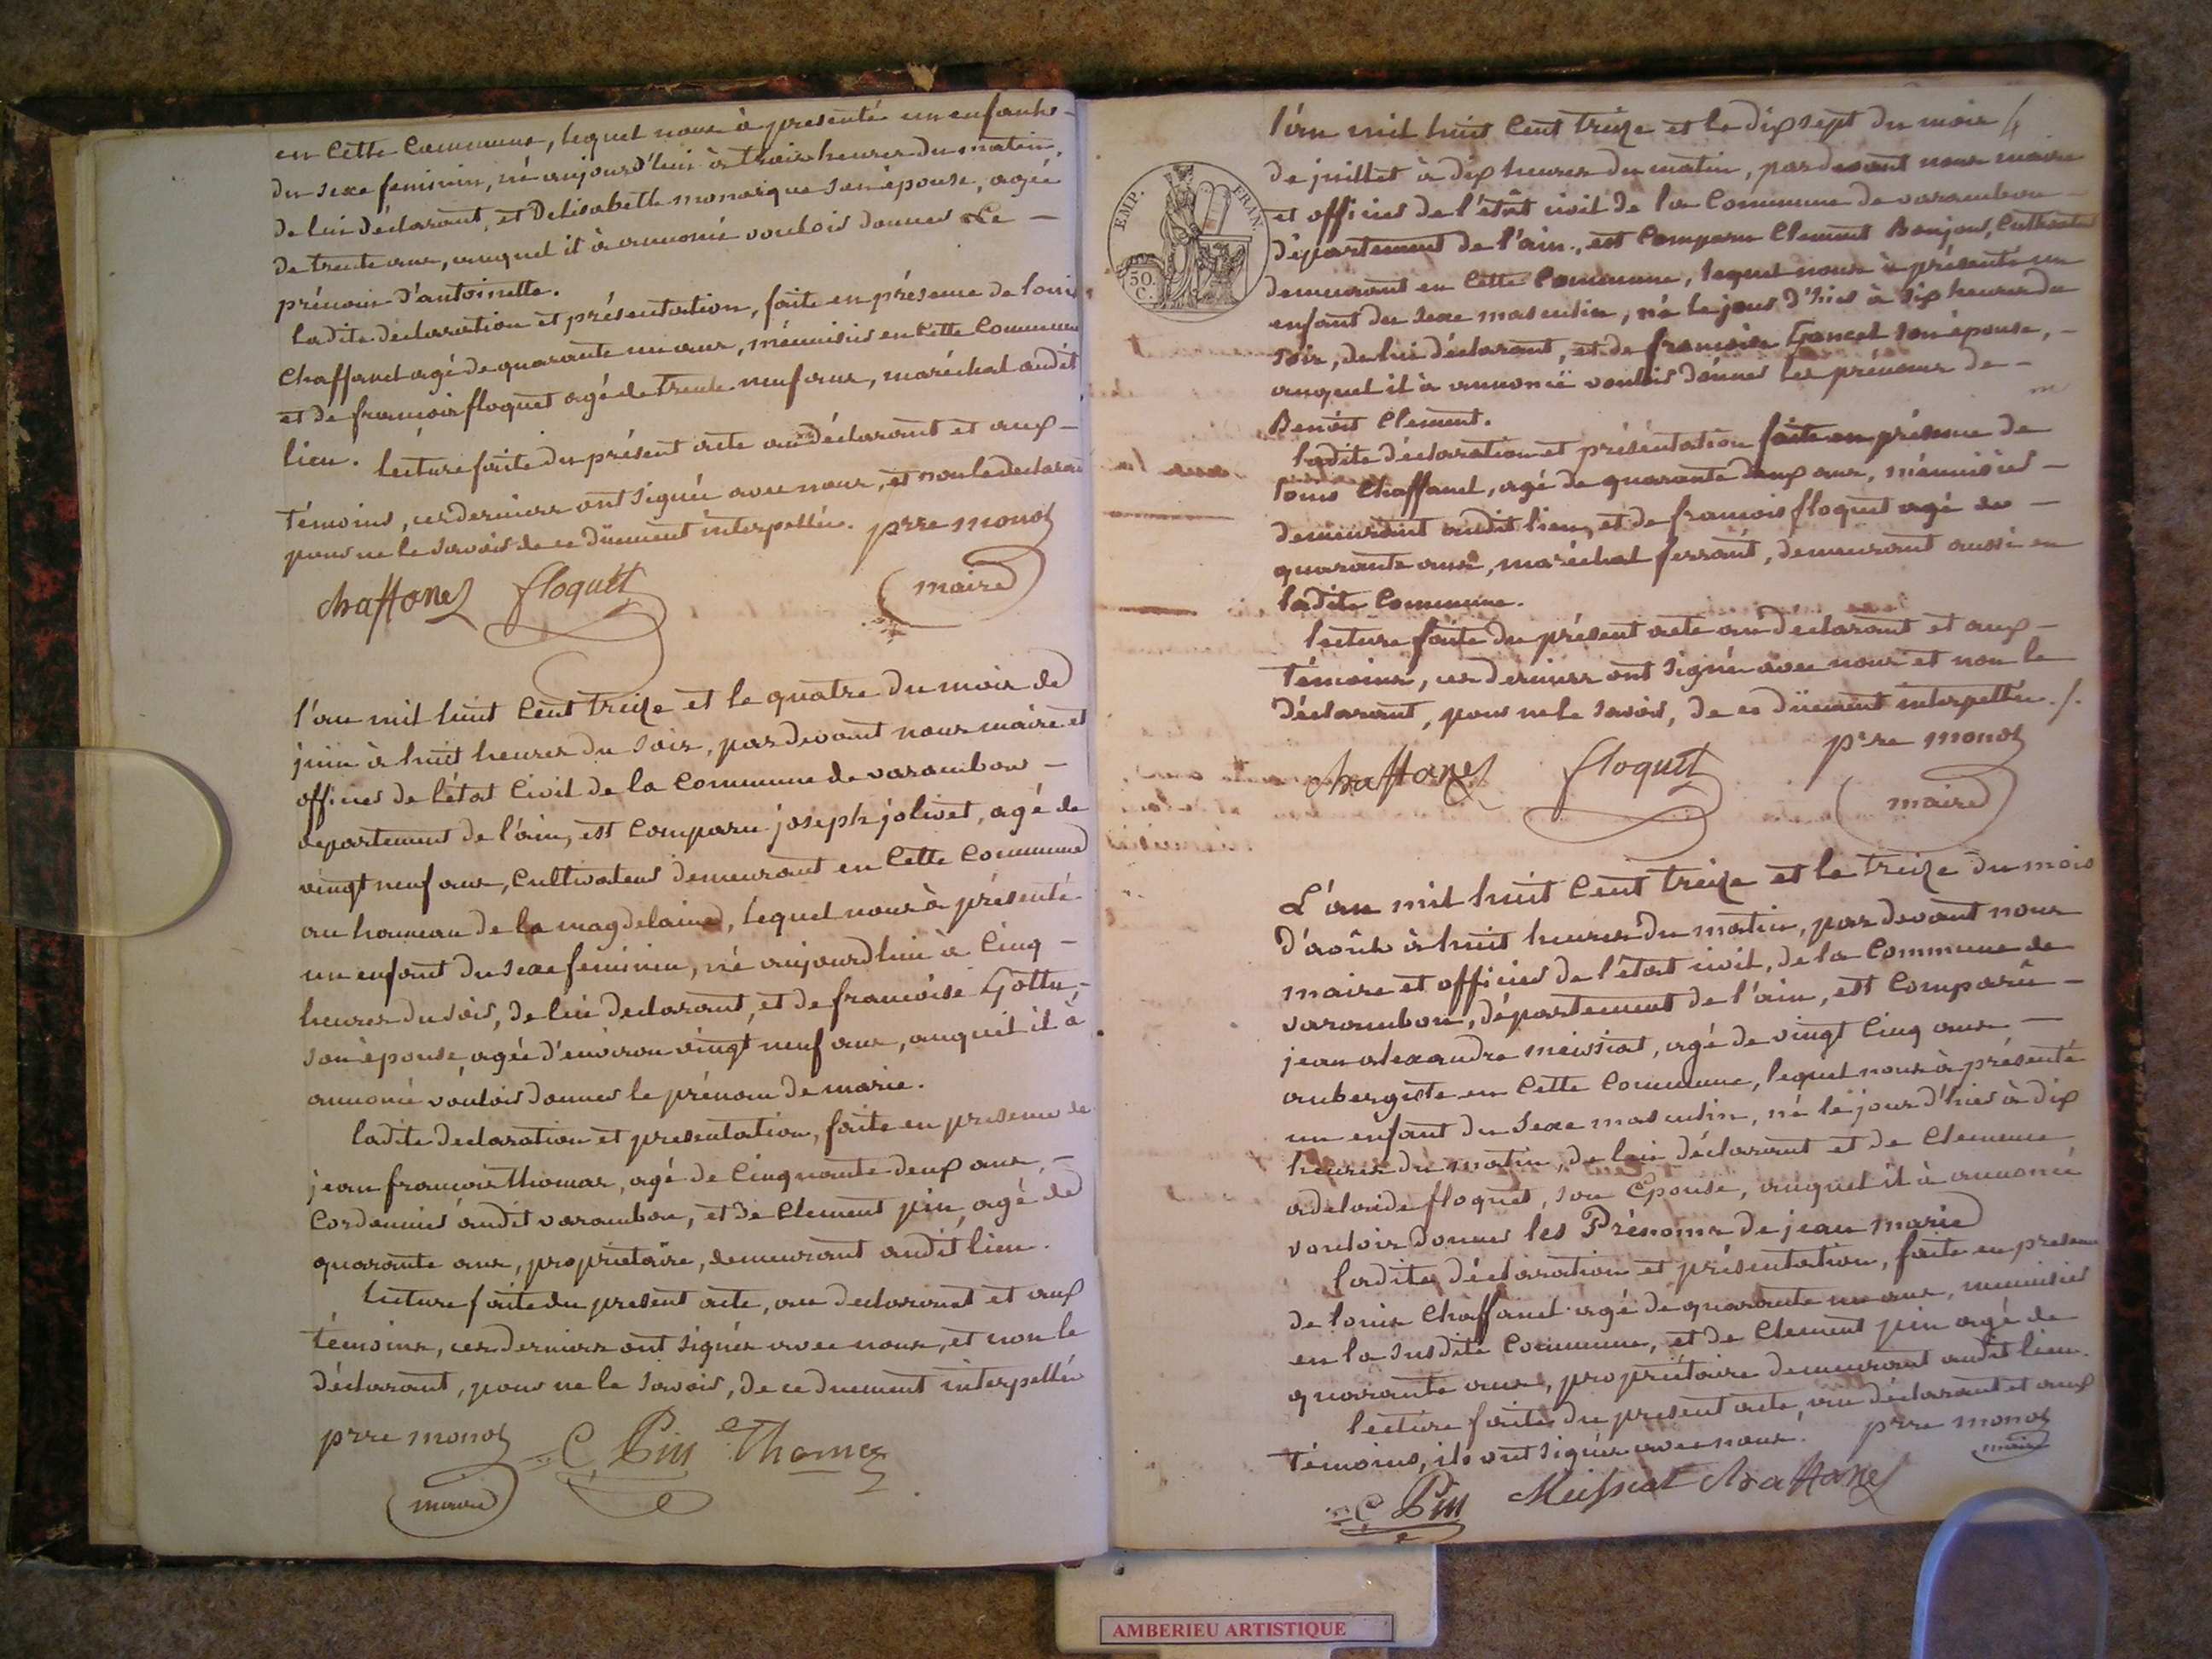 en cette Commune, lequel nous à presenté un enfant
du sexe feminin, né aujourd'hui à trois heures du matin,
de lui déclarant, et Delisabeth monarque son épouse, agée
de trente ans, auquel il à annoncé vouloir donner Le
prénom d'antoinette.
ladite declaration et présentation, faite en présence de louis
Chaffanel agé de quarante un ans, ménuisier en cette Commune
et de françois floquet agé de trente neuf ans, maréchal audit
lieu. lecture faite du présent acte au déclarant et aux
témoins, ces derniers ont signés avec nous, et non le declarant
pour ne le savoir de ce düement interpellé. prre monod
chaffanel floquet maire
l'an mil huit Cent treize et le quatre du mois de
juin à huit heures du soir, pardevant nous maire et
officier de l'état Civil de la Commune de varambon
departement de l'ain, est Comparu joseph jolivet, agé de
vingt neuf ans, Cultivateur demeurant en Cette Commune
au hameau de la magdelaine, lequel nous à présenté
un enfant du sexe feminin, né aujourdhui à Cinq
heures du soir, de lui declarant, et de francoise Gottu,
son épouse agée d'environ vingt neuf ans, auquel il à
annoncé vouloir donner le prénom de marie.
ladite declaration et presentation, faite en presence de
jean francois thomas, agé de Cinquante deux ans,
Cordonnier audit varambon, et de Clement pin, agé de
quarante ans, propriétaire, demeurant audit lieu.
lecture faite du present acte, au declarant et aux
témoins, ces derniers ont signés avec nous, et non le
déclarant, pour ne le savoir, de ce duement interpellé
prre monod C Pin Thomas
maire
l'an mil huit Cent treize et le dix sept du mois 4
de juillet à dix heures du matin, pardevant nous maire
et officier de l'état civil de la Commune de varambon
département de l'ain, est Comparu Clement Bonjour, Cultivateur
demeurant en Cette Commune, lequel nous à présenté un
enfant du sexe masculin, né le jour d'hier à six heures du
soir, de lui déclarant, et de francoise Goncet son épouse,
auquel il à annoncé vouloir donner les prénoms de
Benoit Clement.
ladite déclaration et présentation faite en présence de
louis Chaffanel, agé de quarante deux ans, ménuisier
demeurant audit lieu, et de francois floquet agé de
quarante ans, maréchal ferrant, demeurant aussi en
ladite Commune.
lecture faite du présent acte au déclarant et aux
témoins, ces derniers ont signé avec nous et non le
déclarant, pour ne le savoir, de ce düement interpellé ./.
chaffanel floquet prre monod
maire
L'an mil huit Cent treize et le treize du mois
d'août à huit heures du matin, pardevant nous
maire et officier de l'état civil, de la Commune de
varambon, département de l'ain, est Comparû
jean alexandre meissiat, agé de vingt Cinq ans
aubergiste en Cette Commune, lequel nous à présenté
un enfant du sexe masculin, né le jour d'hier à dix
heures du matin, de lui déclarant et de Clemence
adelaide floquet, son Epouse, auquel il à annoncé
vouloir donner les Prénoms de jean marie
ladite déclaration et présentation, faite en presence
de louis Chaffanel agé de quarante un ans, menuisier
en la susdite Commune, et de Clement pin agé de
quarante ans, propriétaire demeurant audit lieu.
lecture faite du present acte, au déclarant et aux
témoins, ils ont signés avec nous. prre monod
maire
C Pin Meissiat chaffanel
EMP. FRAN.
50.
C.
AMBERIEU ARTISTIQUE